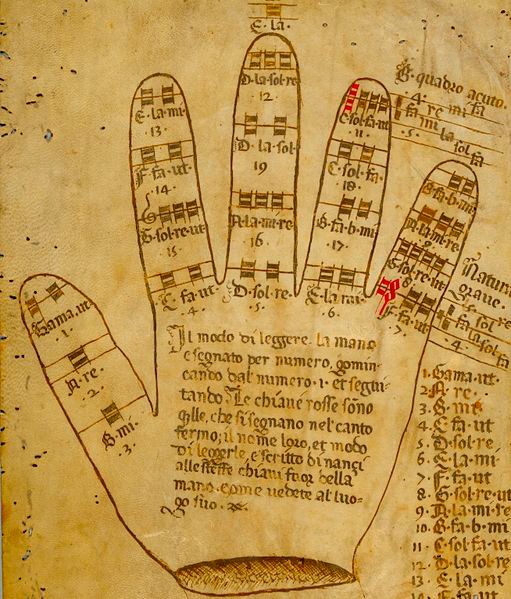 E la.
D la sol re
12
E la mi
13.
C sol fa ut
11
D la sol
19
F fa ut
14.
C sol fa
18
G sol re ut
15
A la mi re
16.
B fa b mi
17.
C fa ut
.4.
D sol re
.5.
E la mi
.6.
B quadro acuto.
.4. re mi fa
fa mi la sol fa
.5.
B fa b mi
A la mi re
G sol re ut
F fa ut
.7.
Natura
grave.
fa sol re
.4.
Gama ut
1.
A re
.2.
B mi
.3.
Il modo di leggere la mano
e segnato per numero, comin-
cando dal numero .1. et segui-
tando. Le chiave rosse sono
qlle, che si segnano nel canto
fermo; il nome loro, et modo
di leggerle, e scritto dinançi
alle stesse chiavi fuor della
mano. come vedete al luo-
go suo.
1. Gama ut
2. A re
3. B mi
4. C fa ut
5. D sol re
6. E la mi
7. F fa ut
8. G sol re ut
9. A la mi re
10. B fa b mi
11. C sol fa ut
12. D la sol re
13. E la mi
14. F fa ut